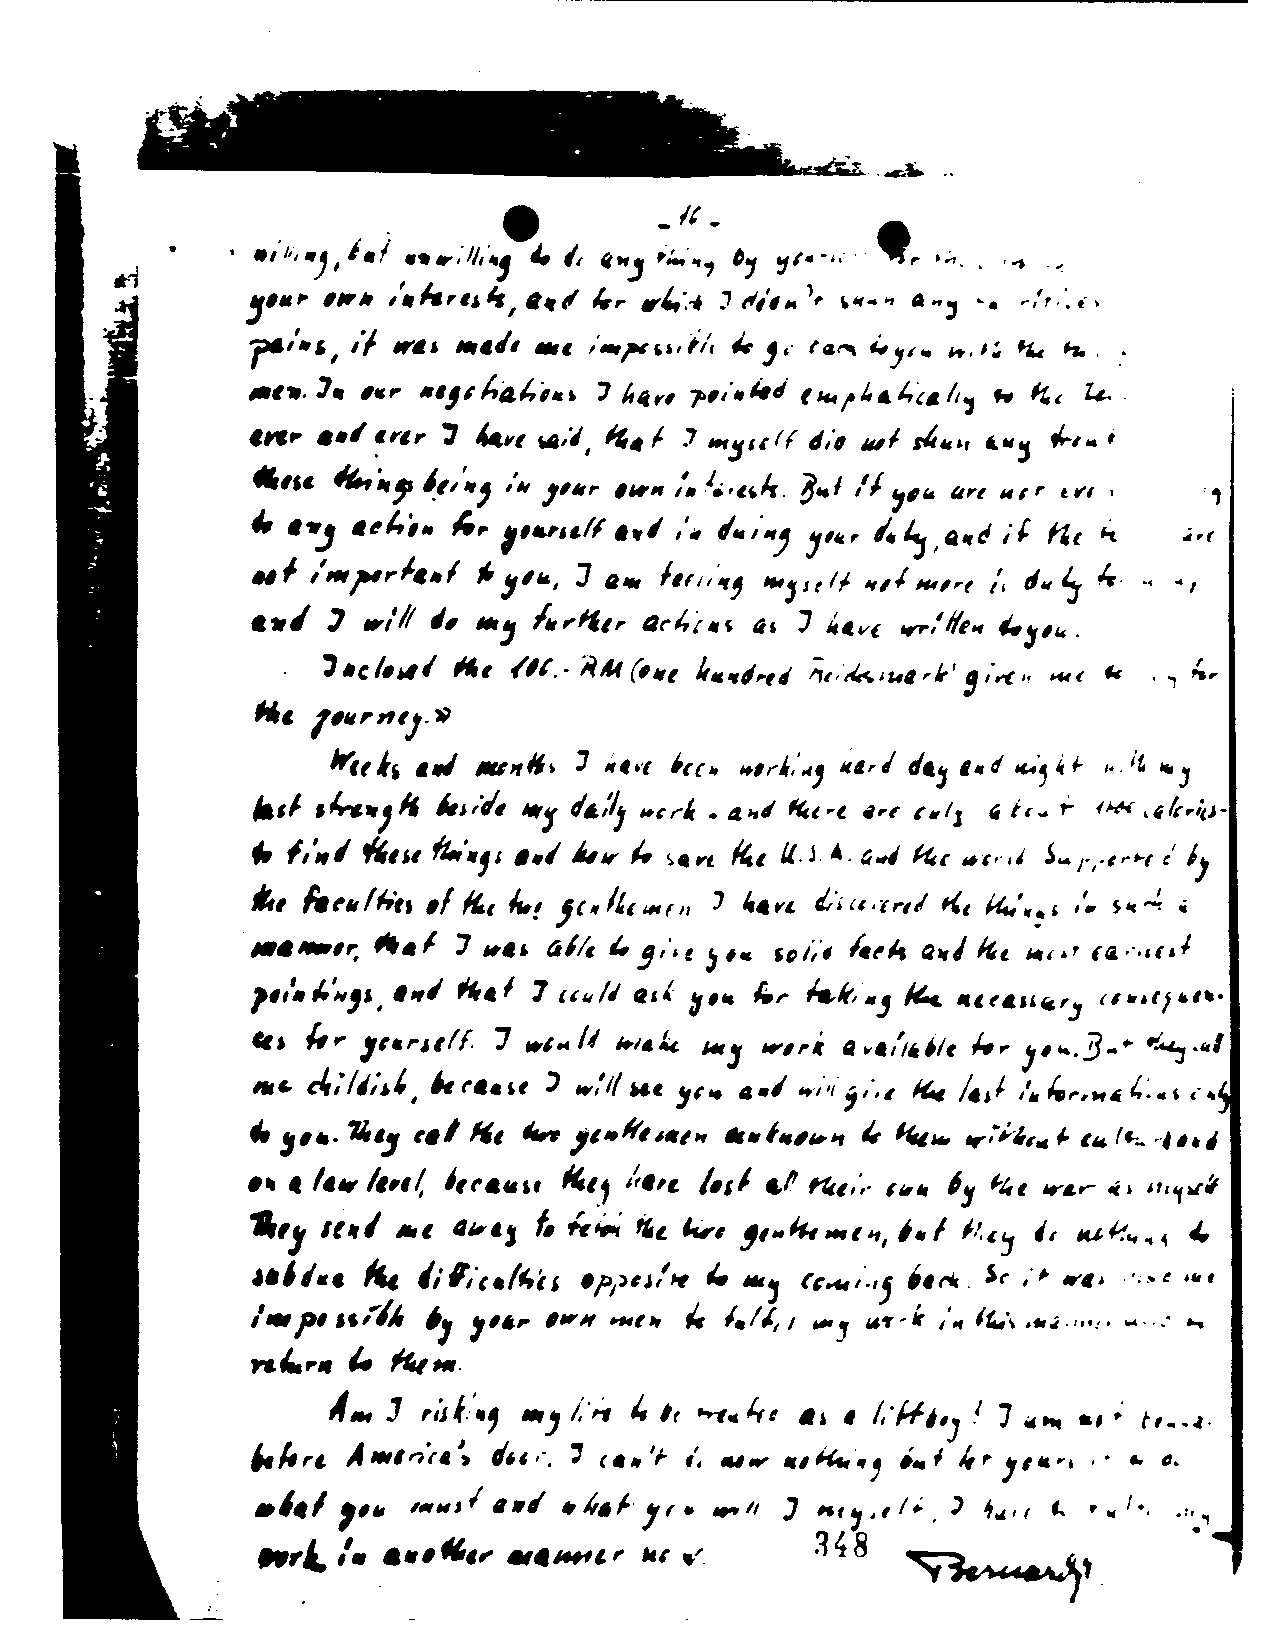 - 16 -
willing, but unwilling to do anything by
your own interests, and for which I didn't shun any
pains, it was made me impossible to go to you with the
men. In our negotiations I have pointed emphatically to the
ever and ever I have said, that I myself did not shun any
those things being in your own interests. But if you are not
to any action for yourself and in duing your duty, and if the are
not important to you, I am feeling myself not more in duty to
and I will do my further actions as I have written to you.
Inclosed the 100.- RM (one hundred Reichsmark) given me for
the journey.»
Weeks and months I have been working hard day and night with my
last strength beside my daily work - and there are only about calories -
to find these things and how to save the U.S.A. and the world. Supported by
the faculties of the two gentlemen I have discovered the things in such a
manner, that I was able to give you solid facts and the most earnest
pointings, and that I could ask you for taking the necessary consequen-
ces for yourself. I would make my work available for you. But they call
me childish, because I will see you and will give the last informations only
to you. They call the two gentlemen unknown to them without and
on a law level, because they have lost all their own by the war as myself
They send me away to fetch the two gentlemen, but they do nothing to
subdue the difficulties opposite to my coming back. So it was me
impossible by your own men to my work in this manner
return to them.
Am I risking my life to be treated as a liftboy! I am not
before America's door. I can't do now nothing but for
what you must and what you will I myself, I have to my
work in another manner now.
348
Bernardy